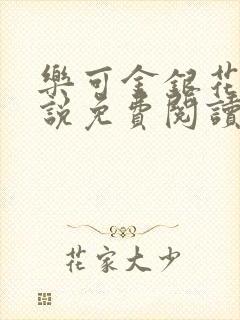 樂可金銀花
說免費閱讀
花家大少